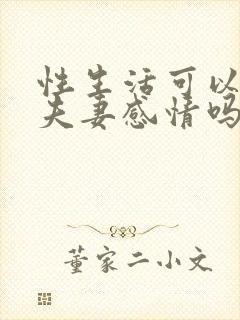 性生活可以
夫妻感情吗
董家二小文